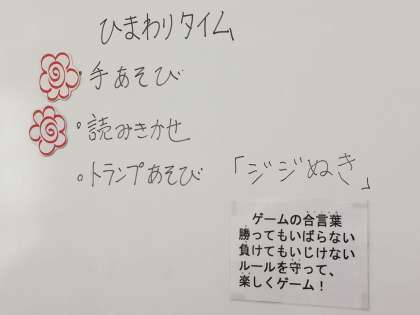 ひまわりタイム
・手あそび
・読みきかせ
・トランプあそび 「ジジぬき」
ゲームの合言葉
勝ってもいばらない
負けてもいじけない
ルールを守って、
楽しくゲーム！